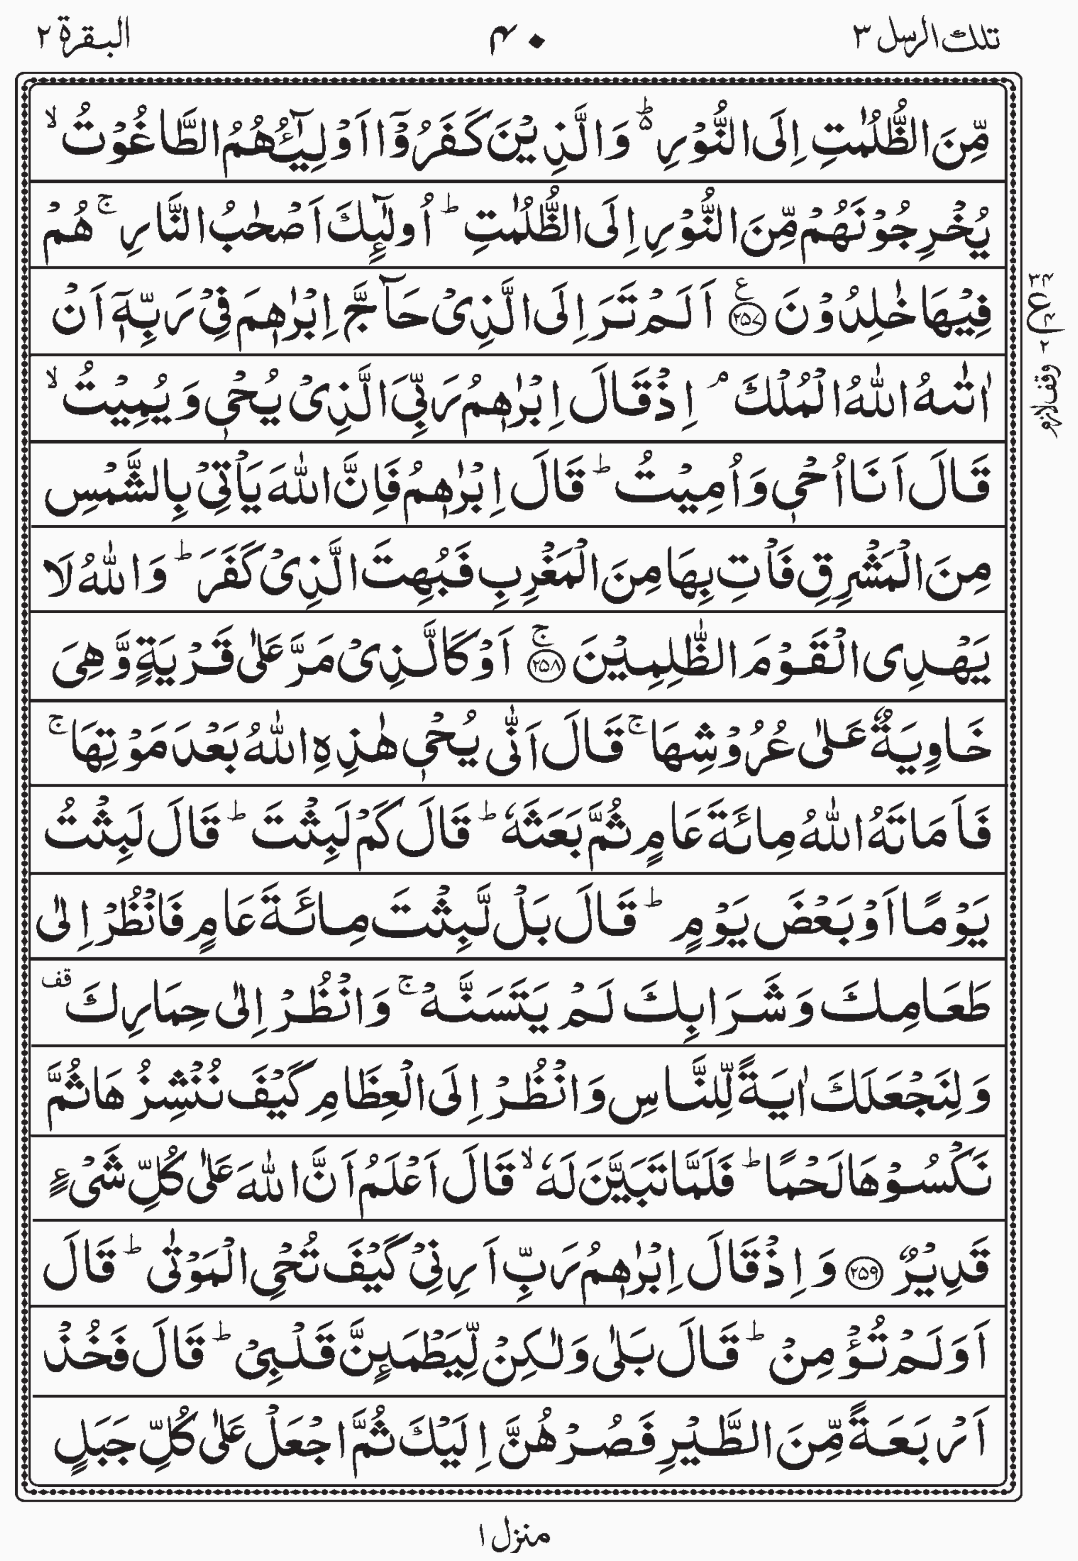 تلك الرسل ٣
٤٠
البقرة ٢
مِّنَ الظُّلُمٰتِ اِلَى النُّوْرِ ؕ۬ وَالَّذِيْنَ كَفَرُوْۤا اَوْلِيٰٓـُٔهُمُ الطَّاغُوْتُ ۙ
يُخْرِجُوْنَهُمْ مِّنَ النُّوْرِ اِلَى الظُّلُمٰتِ ؕ اُولٰٓئِكَ اَصْحٰبُ النَّارِ ۚ هُمْ
فِيْهَا خٰلِدُوْنَ ۧ ﴿٢٥٧﴾ اَلَمْ تَرَ اِلَى الَّذِىْ حَآجَّ اِبْرٰهٖمَ فِىْ رَبِّهٖۤ اَنْ
اٰتٰىهُ اللّٰهُ الْمُلْكَ ۘ اِذْ قَالَ اِبْرٰهٖمُ رَبِّىَ الَّذِىْ يُحْىٖ وَيُمِيْتُ ۙ
قَالَ اَنَا اُحْىٖ وَاُمِيْتُ ؕ قَالَ اِبْرٰهٖمُ فَاِنَّ اللّٰهَ يَاْتِىْ بِالشَّمْسِ
مِنَ الْمَشْرِقِ فَاْتِ بِهَا مِنَ الْمَغْرِبِ فَبُهِتَ الَّذِىْ كَفَرَ ؕ وَاللّٰهُ لَا
يَهْدِى الْقَوْمَ الظّٰلِمِيْنَ ۚ ﴿٢٥٨﴾ اَوْ كَالَّذِىْ مَرَّ عَلٰى قَرْيَةٍ وَّهِىَ
خَاوِيَةٌ عَلٰى عُرُوْشِهَا ۚ قَالَ اَنّٰى يُحْىٖ هٰذِهِ اللّٰهُ بَعْدَ مَوْتِهَا ۚ
فَاَمَاتَهُ اللّٰهُ مِائَةَ عَامٍ ثُمَّ بَعَثَهٗ ؕ قَالَ كَمْ لَبِثْتَ ؕ قَالَ لَبِثْتُ
يَوْمًا اَوْ بَعْضَ يَوْمٍ ؕ قَالَ بَلْ لَّبِثْتَ مِائَةَ عَامٍ فَانْظُرْ اِلٰى
طَعَامِكَ وَشَرَابِكَ لَمْ يَتَسَنَّهْ ۚ وَانْظُرْ اِلٰى حِمَارِكَ قف
وَلِنَجْعَلَكَ اٰيَةً لِّلنَّاسِ وَانْظُرْ اِلَى الْعِظَامِ كَيْفَ نُنْشِزُهَا ثُمَّ
نَكْسُوْهَا لَحْمًا ؕ فَلَمَّا تَبَيَّنَ لَهٗ ۙ قَالَ اَعْلَمُ اَنَّ اللّٰهَ عَلٰى كُلِّ شَىْءٍ
قَدِيْرٌ ﴿٢٥٩﴾ وَاِذْ قَالَ اِبْرٰهٖمُ رَبِّ اَرِنِىْ كَيْفَ تُحْىِ الْمَوْتٰى ؕ قَالَ
اَوَلَمْ تُؤْمِنْ ؕ قَالَ بَلٰى وَلٰكِنْ لِّيَطْمَئِنَّ قَلْبِىْ ؕ قَالَ فَخُذْ
اَرْبَعَةً مِّنَ الطَّيْرِ فَصُرْهُنَّ اِلَيْكَ ثُمَّ اجْعَلْ عَلٰى كُلِّ جَبَلٍ
٣٤
ع
٤
٢
وقف لازم
منزل ١